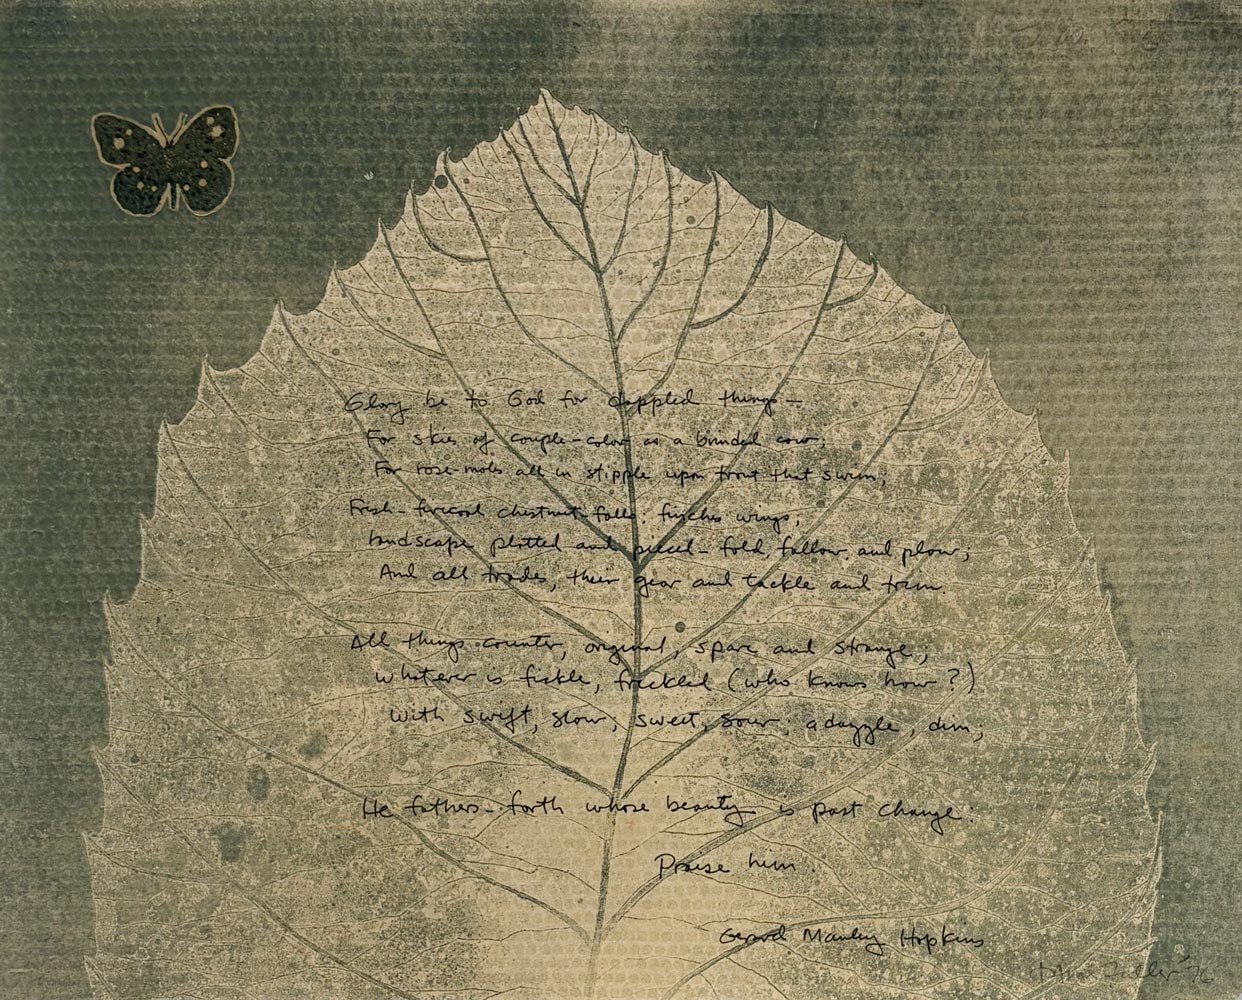 Glory be to God for dappled things –
For skies of couple-color as a brinded cow;
For rose-moles all in stipple upon trout that swim;
Fresh-firecoal chestnut-falls; finches wings;
Landscape plotted and pieced – fold, fallow, and plow;
And all trades, their gear and tackle and trim.
All things counter, original, spare and strange;
Whatever is fickle, freckled (who knows how?)
With swift, slow; sweet, sour; adazzle, dim;
He fathers-forth whose beauty is past change:
Praise him.
Gerard Manley Hopkins
'76